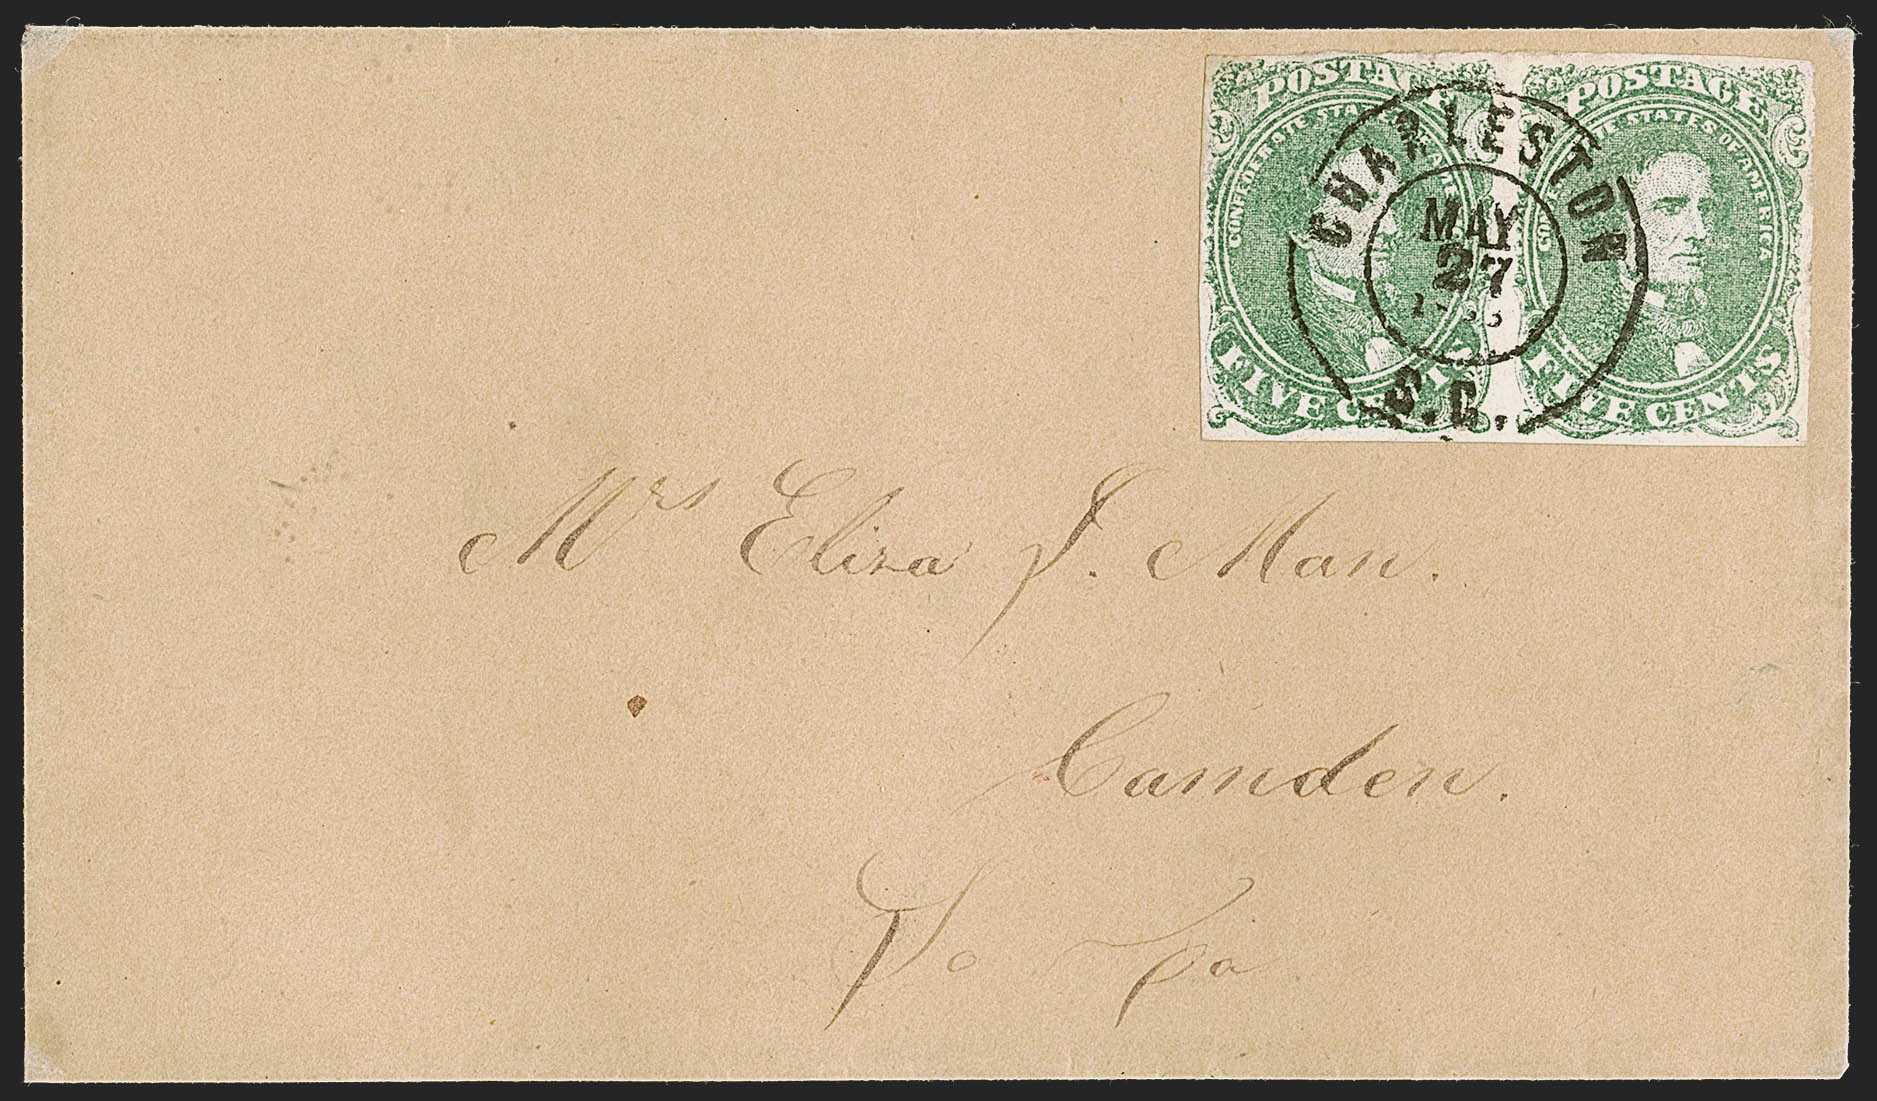 POSTAGE POSTAGE
CONFEDERATE STATES OF AMERICA
CONFEDERATE STATES OF AMERICA
CHARLESTON
MAY
27
S.C.
FIVE CENTS FIVE CENTS
Mrs Eliza J. Man.
Camden.
So Ca